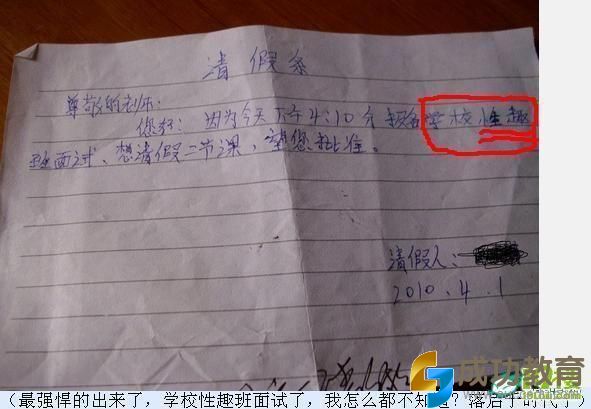 请假条
尊敬的老师:
您好:因为今天下午4:10分报名学校性趣
班面试、想请假二节课,望您批准。
请假人:
2010.4.1
成功教育
(最强悍的出来了,学校性趣班面试了,我怎么都不知道?落后于时代了)